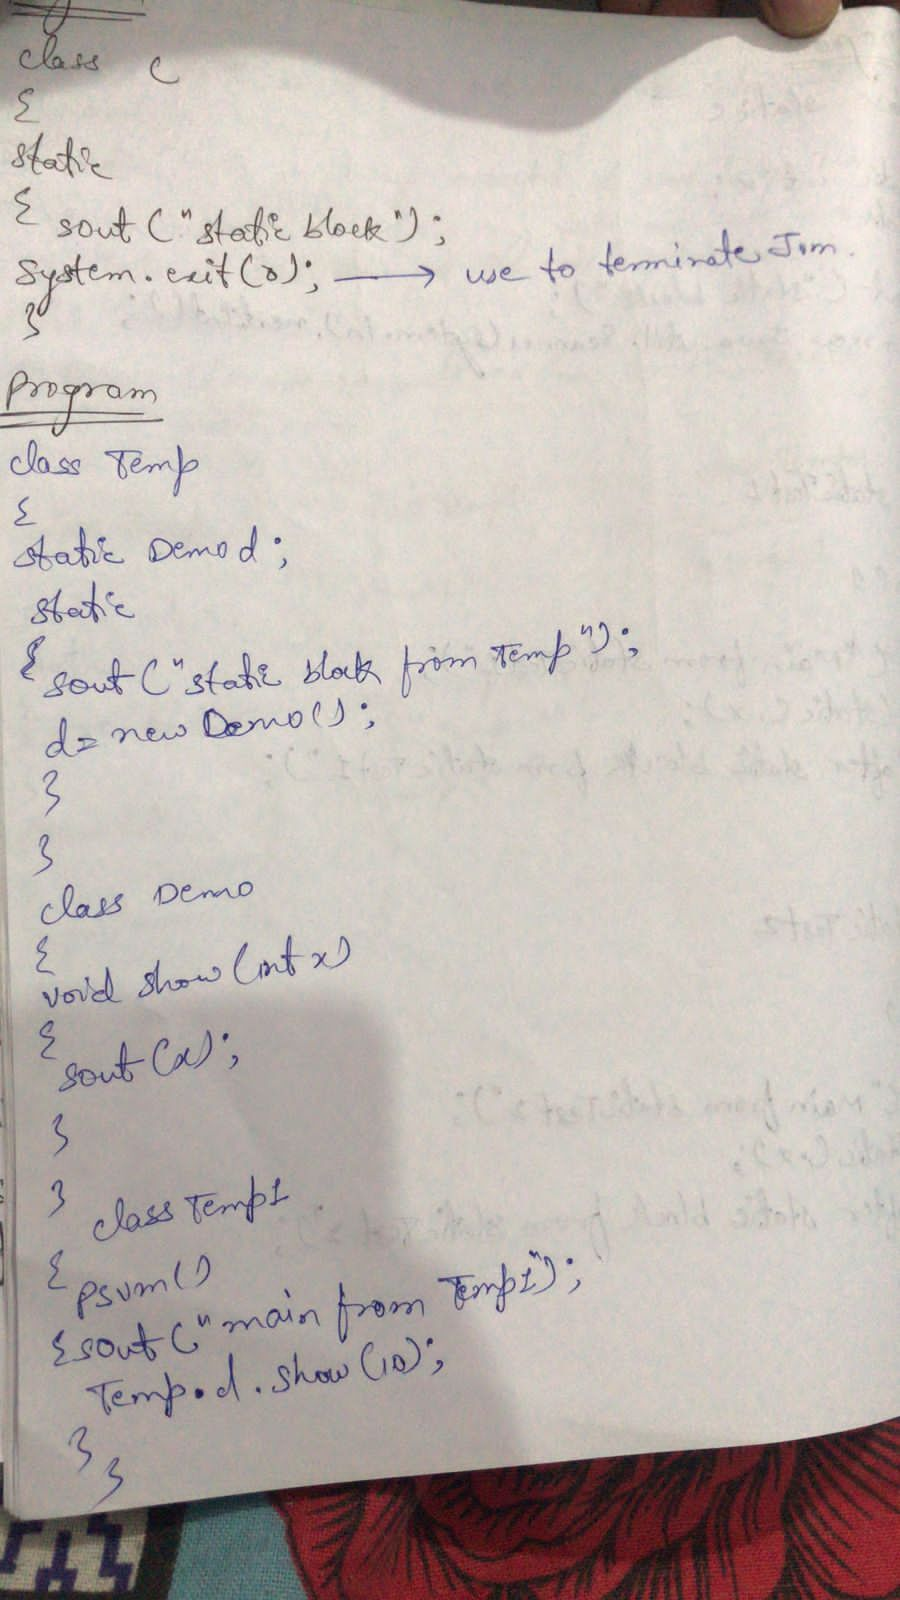 class C
{
static
{ sout ("static block");
System.exit(0); → use to terminate Jvm.
}
Program
class Temp
{
static Demo d;
static
{ sout ("static block from Temp");
d= new Demo();
}
}
class Demo
{
void show (int x)
{
sout (x);
}
} class Temp1
{ psvm()
{ sout ("main from Temp1");
Temp.d.show (10);
}
}